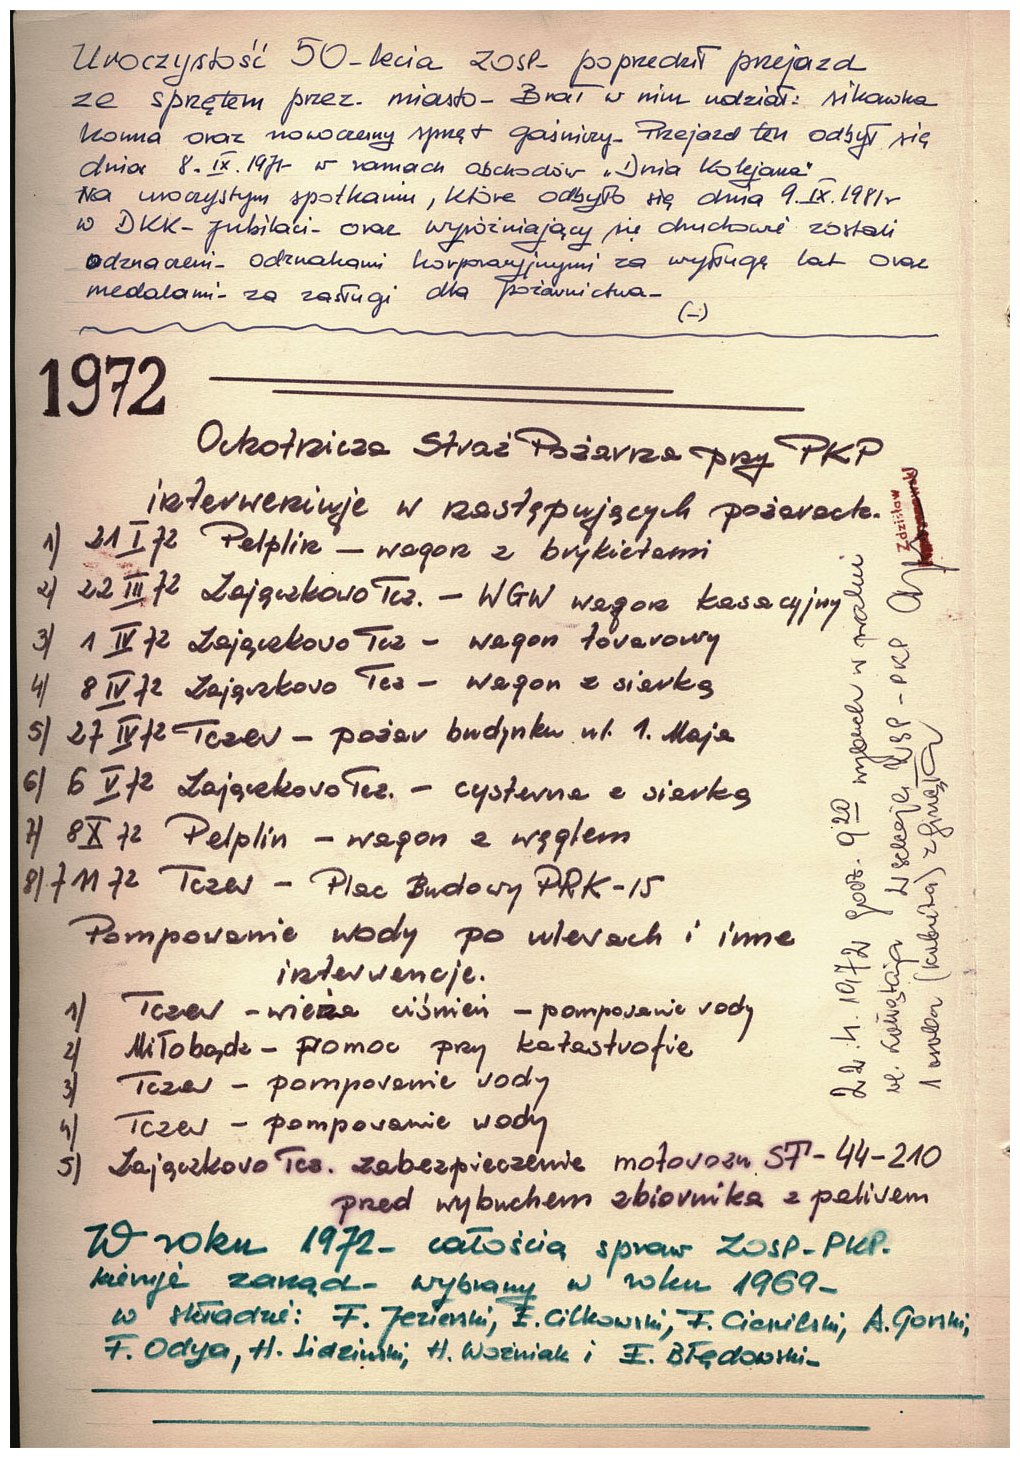 Uroczystość 50-lecia ZOSP- poprzedził przejazd
ze sprzętem przez- miasto- Brał w nim udział: sikawka
konna oraz nowoczesny sprzęt gaśniczy- Przejazd ten odbył się
dnia 8.IX.1971r w ramach obchodów „Dnia Kolejarza"
Na uroczystym spotkaniu, które odbyło się dnia 9.IX.1981r
w DKK- jubilaci- oraz wyróżniający się druhowie zostali
odznaczeni- odznakami korporacyjnymi za wysługę lat oraz
medalami- za zasługi dla pożarnictwa-
(-)
1972
Ochotnicza Straż Pożarna przy PKP
interweniuje w następujących pożarach.
1) 21 I 72 Pelplin — wagon z brykietami
2) 22 III 72 Zajączkowo Tcz. — WGW wagon kasacyjny
3) 1 IV 72 Zajączkowo Tcz — wagon towarowy
4) 8 IV 72 Zajączkowo Tcz — wagon z siarką
5) 27 IV 72 Tczew — pożar budynku ul. 1. Maja
6) 6 V 72 Zajączkowo Tcz. — cysterna z siarką
7) 8 X 72 Pelplin — wagon z węglem
8) 7 11 72 Tczew — Plac Budowy PRK-15
Pompowanie wody po ulewach i inne
interwencje.
1) Tczew - wieża ciśnień — pompowanie wody
2) Miłobądz - pomoc przy katastrofie
3) Tczew - pompowanie wody
4) Tczew - pompowanie wody
5) Zajączkowo Tcz. zabezpieczenie motowozu ST-44-210
przed wybuchem zbiornika z paliwem
W roku 1972- całością spraw ZOSP-PKP.
kieruje zarząd- wybrany w roku 1969-
w składzie: F. Jezierski, E. Cilkowski, F. Ciesielski, A. Gorski,
F. Odya, H. Lidzinski, H. Wozniak i E. Błędowski-
22.4.1972 godz. 9 20 wybuch w pralni
ul. Kołłątaja w sekcji WSP-PKP
1 osoba (kobieta) zginęła
Zdzisław